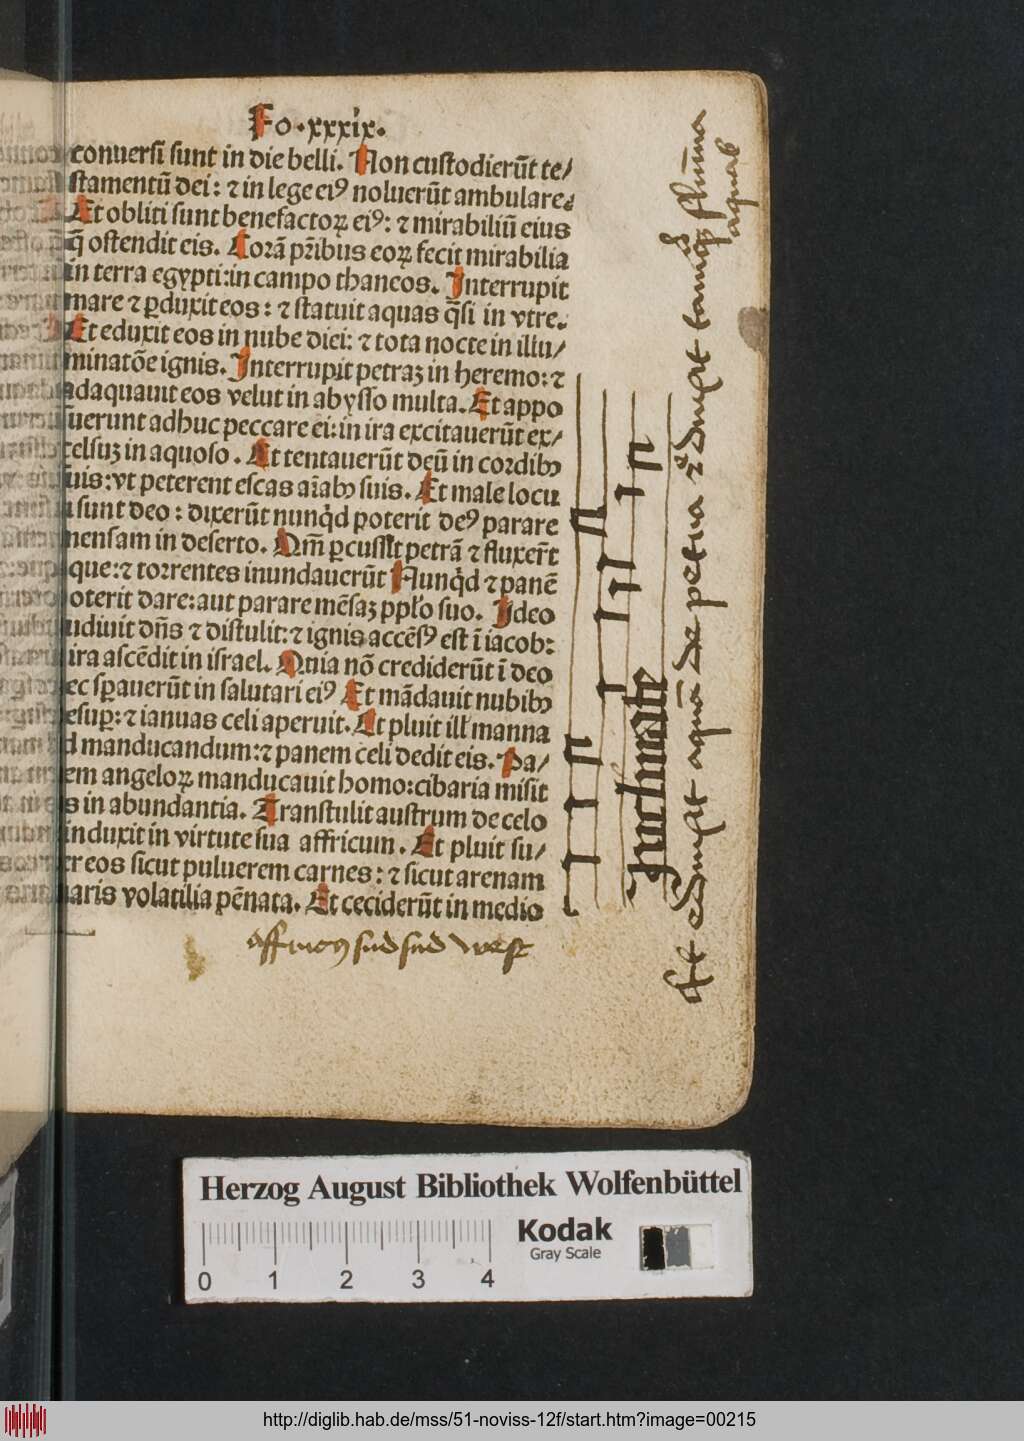 Fo.xxxix.
conuersi sunt in die belli. Non custodierūt te/
stamentū dei: ⁊ in lege eiꝰ noluerūt ambulare.
Et obliti sunt benefactoꝝ eiꝰ: ⁊ mirabiliū eius
q̄ ostendit eis. Corā pr̄ibus eoꝝ fecit mirabilia
in terra egypti: in campo thaneos. Interrupit
mare ⁊ ꝑduxit eos: ⁊ statuit aquas q̄si in vtre.
Et eduxit eos in nube diei: ⁊ tota nocte in illu/
minatōe ignis. Interrupit petraꝫ in heremo: ⁊
adaquauit eos velut in abysso multa. Et appo
suerunt adhuc peccare ei: in ira excitauerūt ex/
celsuꝫ in aquoso. Et tentauerūt deū in cordibꝰ
suis: vt peterent escas aīabꝰ suis. Et male locu
sunt deo: dixerūt nunqd poterit deꝰ parare
mensam in deserto. Qm̄ ꝑcussit petrā ⁊ fluxer̄t
que: ⁊ torrentes inundauerūt Nunqd ⁊ panē
oterit dare: aut parare mēsaꝫ pplo suo. Ideo
udiuit dn̄s ⁊ distulit: ⁊ ignis accēsꝰ est ī iacob:
ira ascēdit in israel. Quia nō crediderūt ī deo
ec speraueūt in salutari eiꝰ Et mādauit nubibꝰ
esuꝑ: ⁊ ianuas celi aperuit. Et pluit ill manna
d manducandum: ⁊ panem celi dedit eis. Pa/
em angeloꝝ manducauit homo: cibaria misit
s in abundantia. Transtulit austrum de celo
induxit in virtute sua affricum. Et pluit su/
er eos sicut puluerem carnes: ⁊ sicut arenam
maris volatilia pēnata. Et ceciderūt in medio
affricꝰ sud sud west
Inclinate
Et eduxit aquā de petra ⁊ eduxit tanqꝫ flumina
aquas
Herzog August Bibliothek Wolfenbüttel
0 1 2 3 4
Kodak
Gray Scale
http://diglib.hab.de/mss/51-noviss-12f/start.htm?image=00215